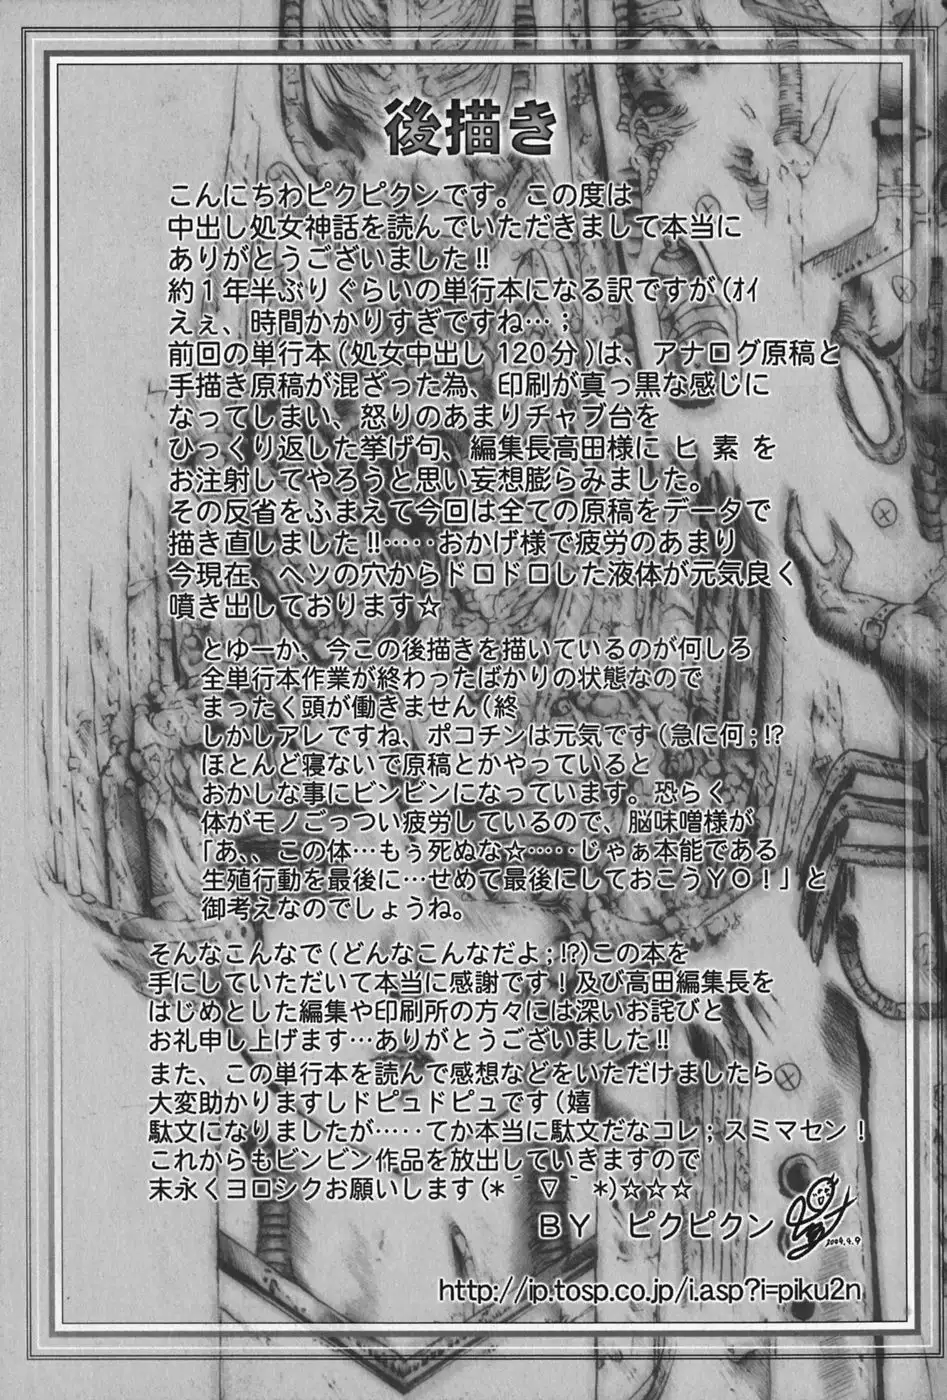 後描き
こんにちわピクピクンです。この度は
中出し処女神話を読んでいただきまして本当に
ありがとうございました!!
約1年半ぶりぐらいの単行本になる訳ですが(ｵｲ
えぇ、時間かかりすぎですね…;
前回の単行本(処女中出し120分)は、アナログ原稿と
手描き原稿が混ざった為、印刷が真っ黒な感じに
なってしまい、怒りのあまりチャブ台を
ひっくり返した挙げ句、編集長高田様にヒ素を
お注射してやろうと思い妄想膨らみました。
その反省をふまえて今回は全ての原稿をデータで
描き直しました!!‥‥‥おかげ様で疲労のあまり
今現在、ヘソの穴からドロドロした液体が元気良く
噴き出しております☆
とゆーか、今この後描きを描いているのが何しろ
全単行本作業が終わったばかりの状態なので
まったく頭が働きません(終
しかしアレですね、ポコチンは元気です(急に何;!?
ほとんど寝ないで原稿とかやっていると
おかしな事にビンビンになっています。恐らく
体がモノごっつい疲労しているので、脳味噌様が
「あ、、この体…もぅ死ぬな☆‥‥‥じゃぁ本能である
生殖行動を最後に…せめて最後にしておこうＹＯ！」と
御考えなのでしょうね。
そんなこんなで(どんなこんなだよ;!?)この本を
手にしていただいて本当に感謝です！及び高田編集長を
はじめとした編集や印刷所の方々には深いお詫びと
お礼申し上げます…ありがとうございました!!
また、この単行本を読んで感想などをいただけましたら
大変助かりますしドピュドピュです(嬉
駄文になりましたが‥‥‥てか本当に駄文だなコレ;スミマセン！
これからもビンビン作品を放出していきますので
末永くヨロシクお願いします(*´∇｀*)☆☆☆
ＢＹ　ピクピクン
2004.4.9
http://ip.tosp.co.jp/i.asp?i=piku2n